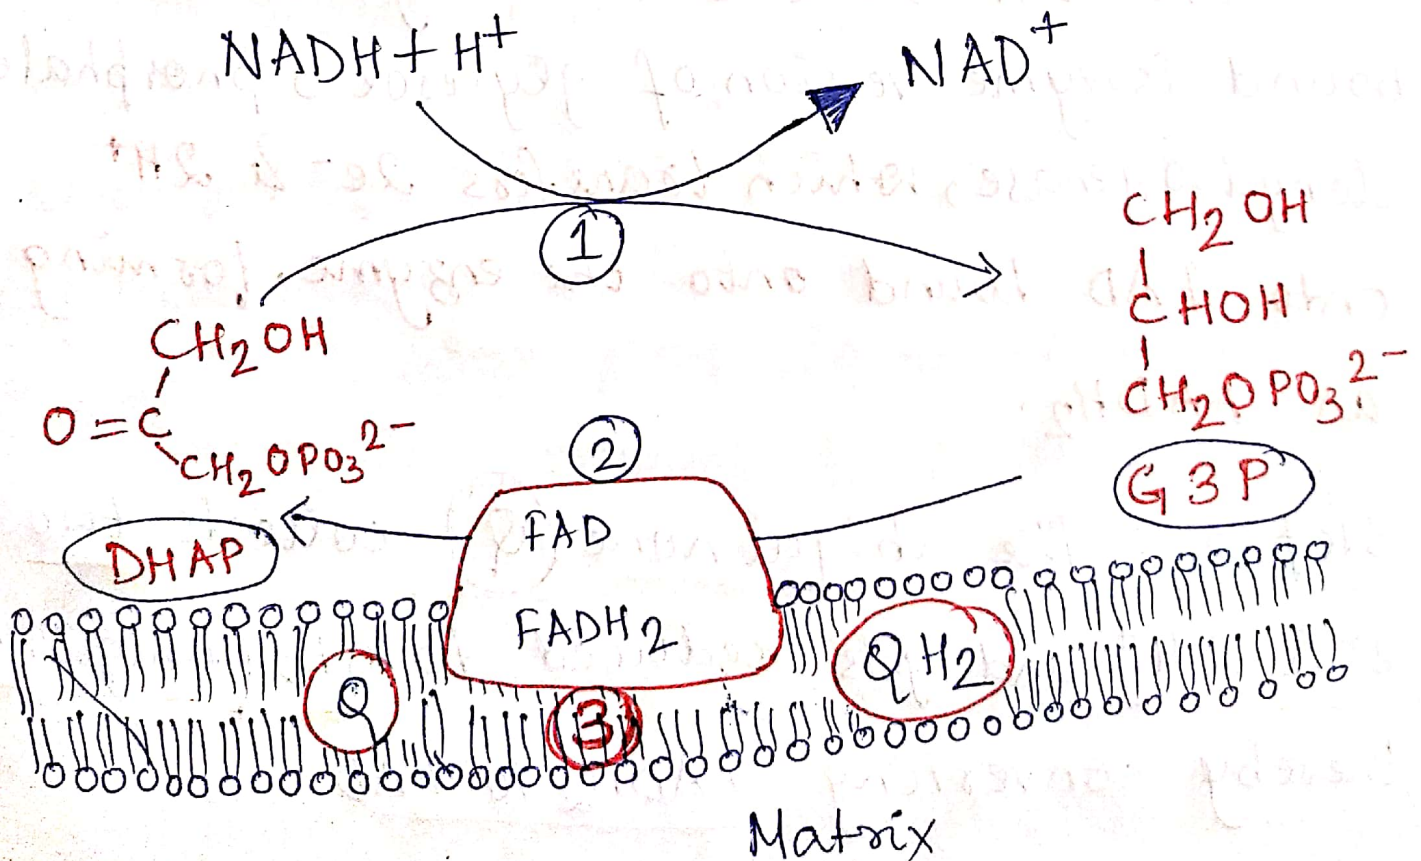 NADH + H⁺
NAD⁺
1
CH₂OH
O=C
CH₂OPO₃²⁻
DHAP
CH₂OH
CHOH
CH₂OPO₃²⁻
G3P
2
FAD
FADH₂
Q
3
QH₂
Matrix